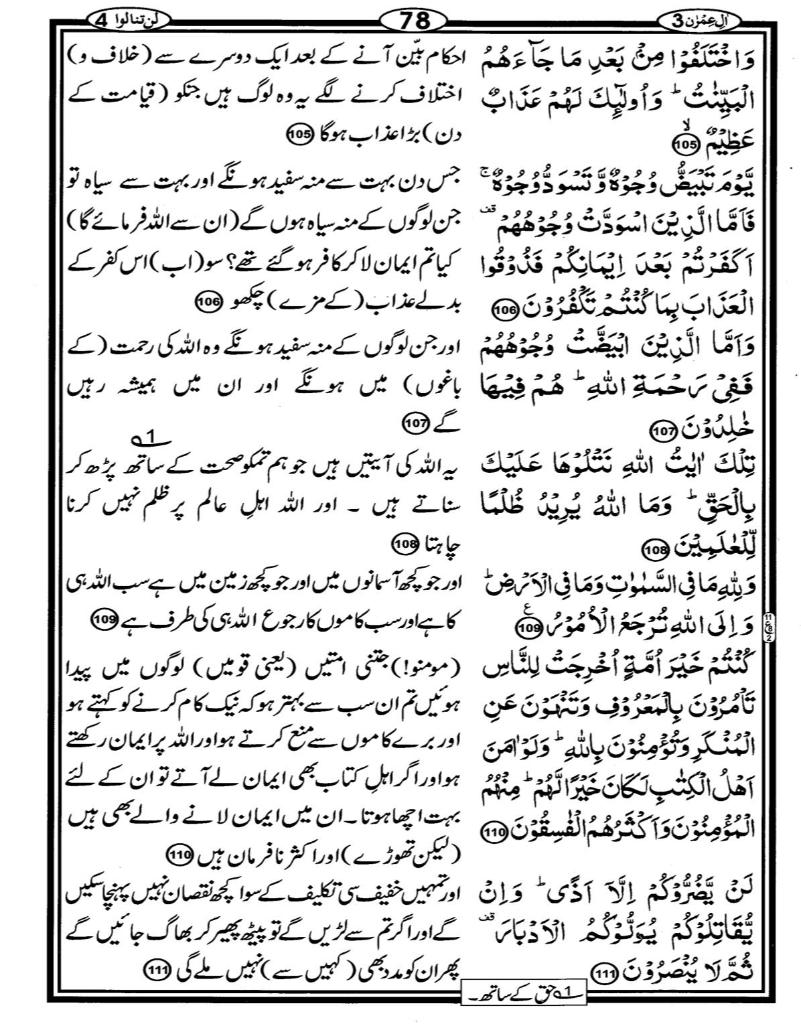 اٰلِ عِمْرٰن 3
78
لن تنالوا 4
وَاخْتَلَفُوْا مِنْۢ بَعْدِ مَا جَآءَهُمُ
الْبَيِّنٰتُ ؕ وَاُولٰٓئِكَ لَهُمْ عَذَابٌ
عَظِيْمٌ ۙ 105
يَّوْمَ تَبْيَضُّ وُجُوْهٌ وَّتَسْوَدُّ وُجُوْهٌ ۚ
فَاَمَّا الَّذِيْنَ اسْوَدَّتْ وُجُوْهُهُمْ ۟
اَكَفَرْتُمْ بَعْدَ اِيْمَانِكُمْ فَذُوْقُوا
الْعَذَابَ بِمَا كُنْتُمْ تَكْفُرُوْنَ 106
وَاَمَّا الَّذِيْنَ ابْيَضَّتْ وُجُوْهُهُمْ
فَفِيْ رَحْمَةِ اللّٰهِ ؕ هُمْ فِيْهَا
خٰلِدُوْنَ 107
تِلْكَ اٰيٰتُ اللّٰهِ نَتْلُوْهَا عَلَيْكَ
بِالْحَقِّ ؕ وَمَا اللّٰهُ يُرِيْدُ ظُلْمًا
لِّلْعٰلَمِيْنَ 108
وَلِلّٰهِ مَا فِي السَّمٰوٰتِ وَمَا فِي الْاَرْضِ ؕ
وَاِلَى اللّٰهِ تُرْجَعُ الْاُمُوْرُ 109 ع
كُنْتُمْ خَيْرَ اُمَّةٍ اُخْرِجَتْ لِلنَّاسِ
تَاْمُرُوْنَ بِالْمَعْرُوْفِ وَتَنْهَوْنَ عَنِ
الْمُنْكَرِ وَتُؤْمِنُوْنَ بِاللّٰهِ ؕ وَلَوْ اٰمَنَ
اَهْلُ الْكِتٰبِ لَكَانَ خَيْرًا لَّهُمْ ؕ مِنْهُمُ
الْمُؤْمِنُوْنَ وَاَكْثَرُهُمُ الْفٰسِقُوْنَ 110
لَنْ يَّضُرُّوْكُمْ اِلَّاۤ اَذًى ؕ وَاِنْ
يُّقَاتِلُوْكُمْ يُوَلُّوْكُمُ الْاَدْبَارَ ۟
ثُمَّ لَا يُنْصَرُوْنَ 111
احکام بیّن آنے کے بعد ایک دوسرے سے (خلاف و)
اختلاف کرنے لگے یہ وہ لوگ ہیں جنکو (قیامت کے
دن) بڑا عذاب ہوگا 105
جس دن بہت سے منہ سفید ہونگے اور بہت سے سیاہ تو
جن لوگوں کے منہ سیاہ ہوں گے (ان سے اللہ فرمائے گا)
کیا تم ایمان لا کر کافر ہو گئے تھے؟ سو (اب) اس کفر کے
بدلے عذاب (کے مزے) چکھو 106
اور جن لوگوں کے منہ سفید ہونگے وہ اللہ کی رحمت (کے
باغوں) میں ہونگے اور ان میں ہمیشہ رہیں
گے 107
یہ اللہ کی آیتیں ہیں جو ہم تمکو صحت 1 کے ساتھ پڑھ کر
سناتے ہیں ۔ اور اللہ اہلِ عالم پر ظلم نہیں کرنا
چاہتا 108
اور جو کچھ آسمانوں میں اور جو کچھ زمین میں ہے سب اللہ ہی
کا ہے اور سب کاموں کا رجوع اللہ ہی کی طرف ہے 109
(مومنو!) جتنی امتیں (یعنی قومیں) لوگوں میں پیدا
ہوئیں تم ان سب سے بہتر ہو کہ نیک کام کرنے کو کہتے ہو
اور برے کاموں سے منع کرتے ہو اور اللہ پر ایمان رکھتے
ہو اور اگر اہلِ کتاب بھی ایمان لے آتے تو ان کے لئے
بہت اچھا ہوتا ۔ ان میں ایمان لانے والے بھی ہیں
(لیکن تھوڑے) اور اکثر نافرمان ہیں 110
اور تمہیں خفیف سی تکلیف کے سوا کچھ نقصان نہیں پہنچا سکیں
گے اور اگر تم سے لڑیں گے تو پیٹھ پھیر کر بھاگ جائیں گے
پھر ان کو مدد بھی (کہیں سے) نہیں ملے گی 111
1 حق کے ساتھ ۔